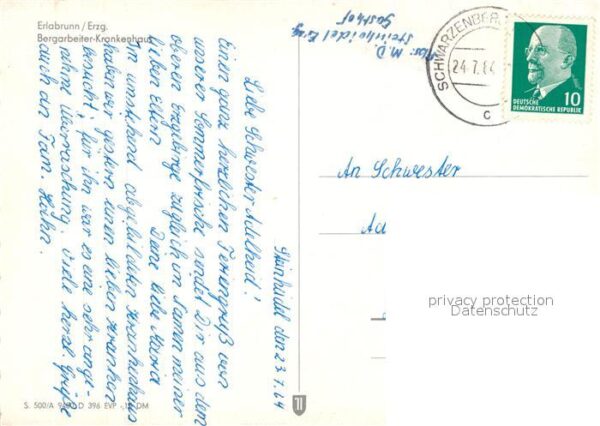 Erlabrunn / Erzg.
Bergarbeiter-Krankenhaus
Abs. M. D.
Steinheidel Erzg.
Gasthof
SCHWARZENBERG
24.7.64
c
10
DEUTSCHE
DEMOKRATISCHE REPUBLIK
Steinheidel, den 23.7.64
Liebe Schwester Adelheid!
Einen ganz herzlichen Feriengruß von
unserer Sommerfrische sendet Dir aus dem
oberen Erzgebirge zugleich im Namen meiner
lieben Eltern
Deine liebe Maria
Im umseitend abgebildeten Krankenhaus
haben wir gestern einen lieben Kranken
besucht, für ihn war es eine sehr ange-
nehme Überraschung. Viele herzl. Grüße
auch an Fam. Hahn.
An Schwester
Ad
privacy protection
Datenschutz
S. 500/A D 396 EVP DM